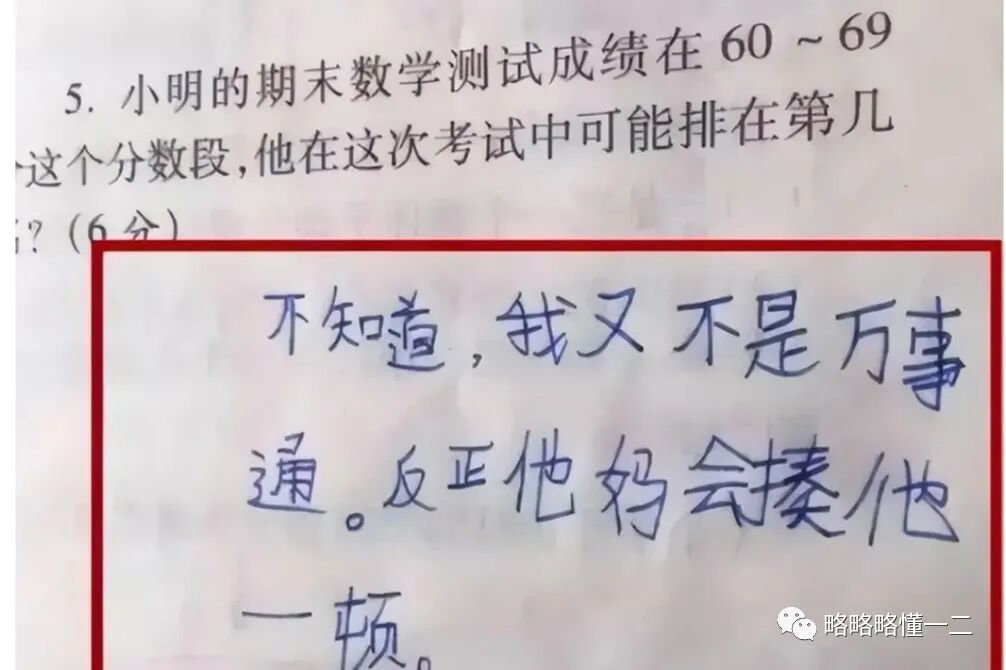 5. 小明的期末数学测试成绩在 60 ~ 69
这个分数段,他在这次考试中可能排在第几
?(6分)
不知道,我又不是万事
通。反正他妈会揍他
一顿。
略略略懂一二